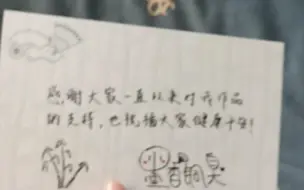 感谢大家一直以来对我作品
的支持，也祝福大家健康平安！